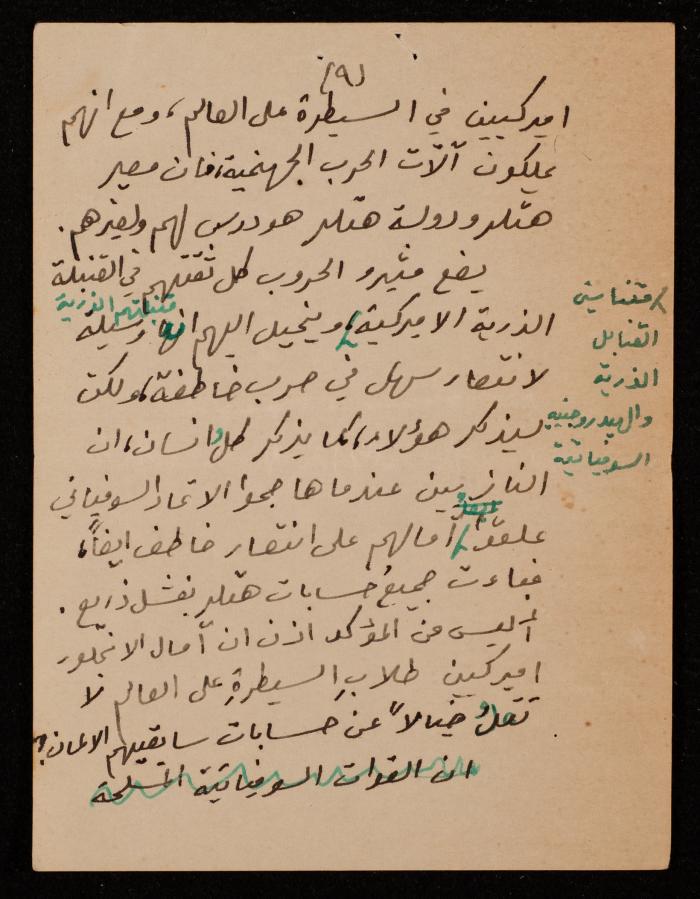 (٩)
اميركيين في السيطرة على العالم، ومع انهم
يملكون آلات الحرب الجهنمية، فان مصير
هتلر ودولة هتلر هو درس لهم ولغيرهم.
يضع مثيرو الحروب كل ثقتهم في القنبلة
قنبلتهم الذرية
الذرية الاميركية، ويخيل اليهم انها وسيلة
متناسين
القنابل
الذرية
والهيدروجنية
السوفياتية
لانتصار سهل في حرب خاطفة، ولكن
ليذكر هؤلاء، كما يذكر كل انسان، ان
النازيين عندما هاجموا الاتحاد السوفياتي
علقوا آمالهم على انتصار خاطف ايضاً،
فباءت جميع حسابات هتلر بفشل ذريع.
أليس من المؤكد اذن ان آمال الانجلو
اميركيين طلاب السيطرة على العالم لا
تقل خيالاً عن حسابات سابقيهم الالمان؟
ان القوات السوفياتية المسلحة